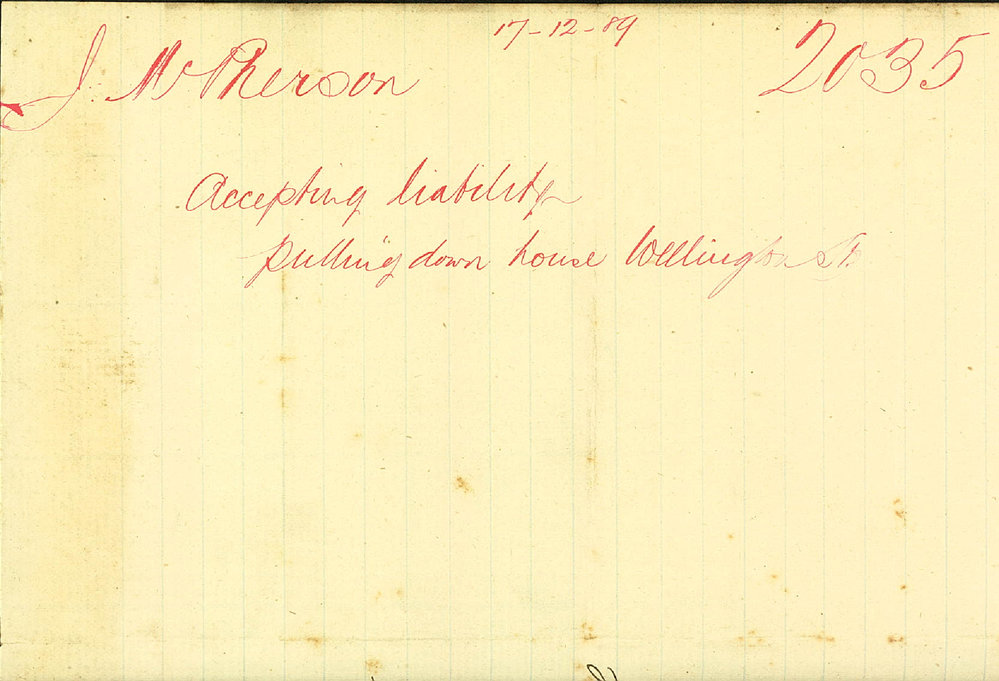 17-12-89
J McPherson 2035
Accepting liability
pulling down house Wellington St